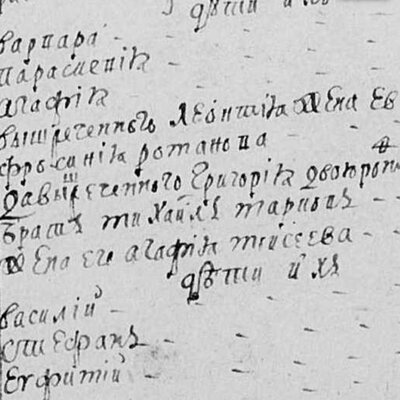 дѣти ихъ
варвара
параскевіѧ
агафіѧ
вышреченного леонтіѧ жена ев
фросиніѧ романова
вышреченного григоріѧ двоюро
братъ михаилъ марковъ
жена его агафіѧ моисеева
дѣти ихъ
василій
стефанъ
евфимій